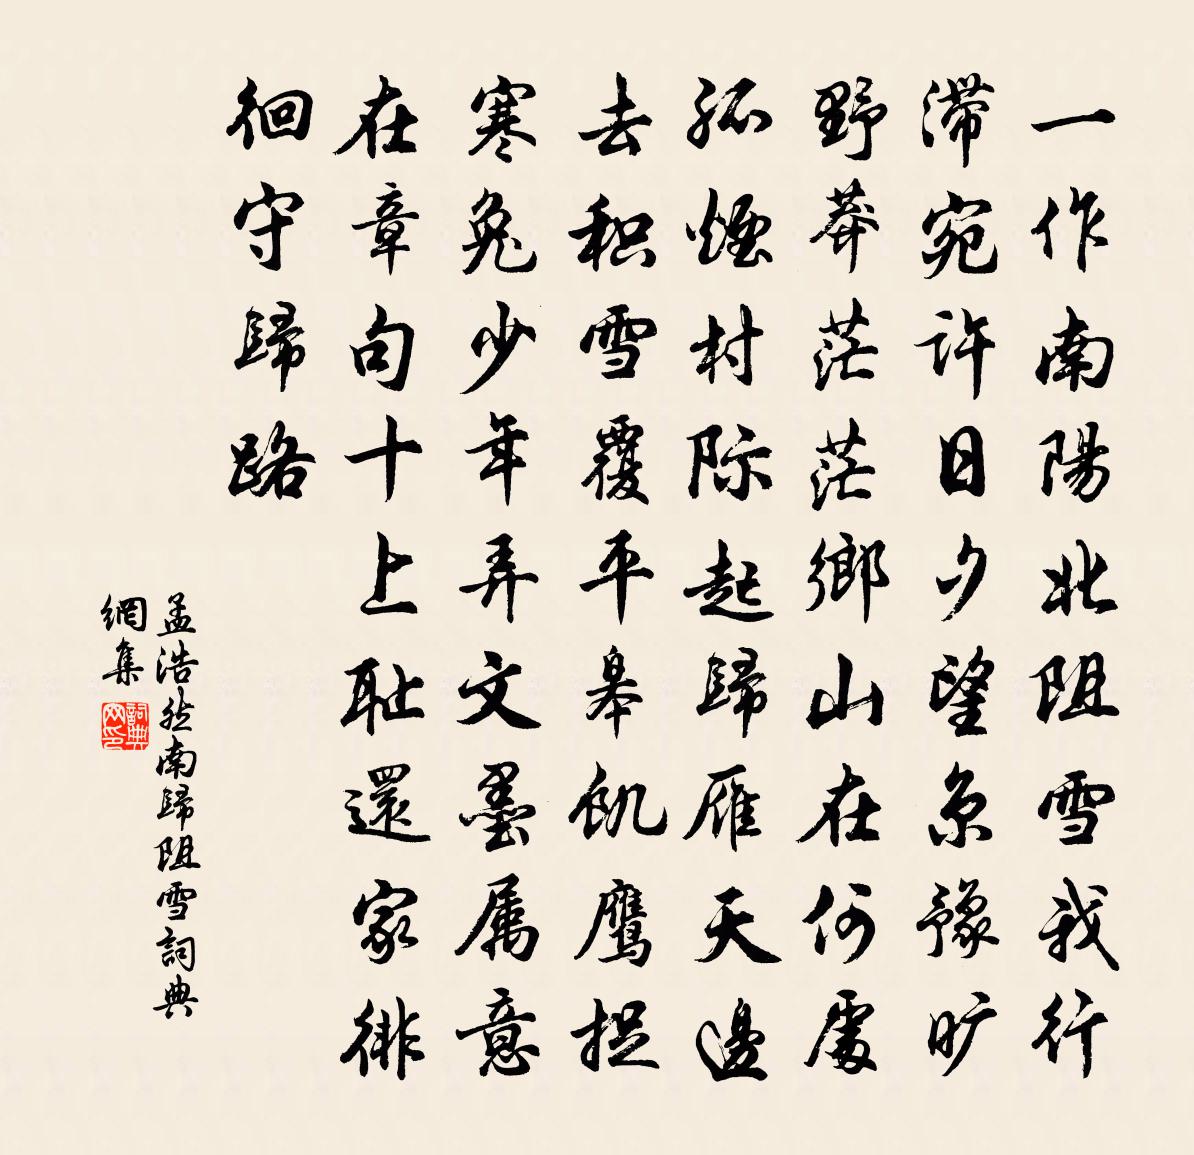 一作南陽北阻雪我行
滞宛许日夕望京豫旷
野莽茫茫鄉山在何處
孤煙村际起歸雁天邊
去积雪覆平皋飢鷹捉
寒兔少年弄文墨属意
在章句十上耻還家徘
徊守歸路
孟浩然南歸阻雪詞典
網集
詞典
网印